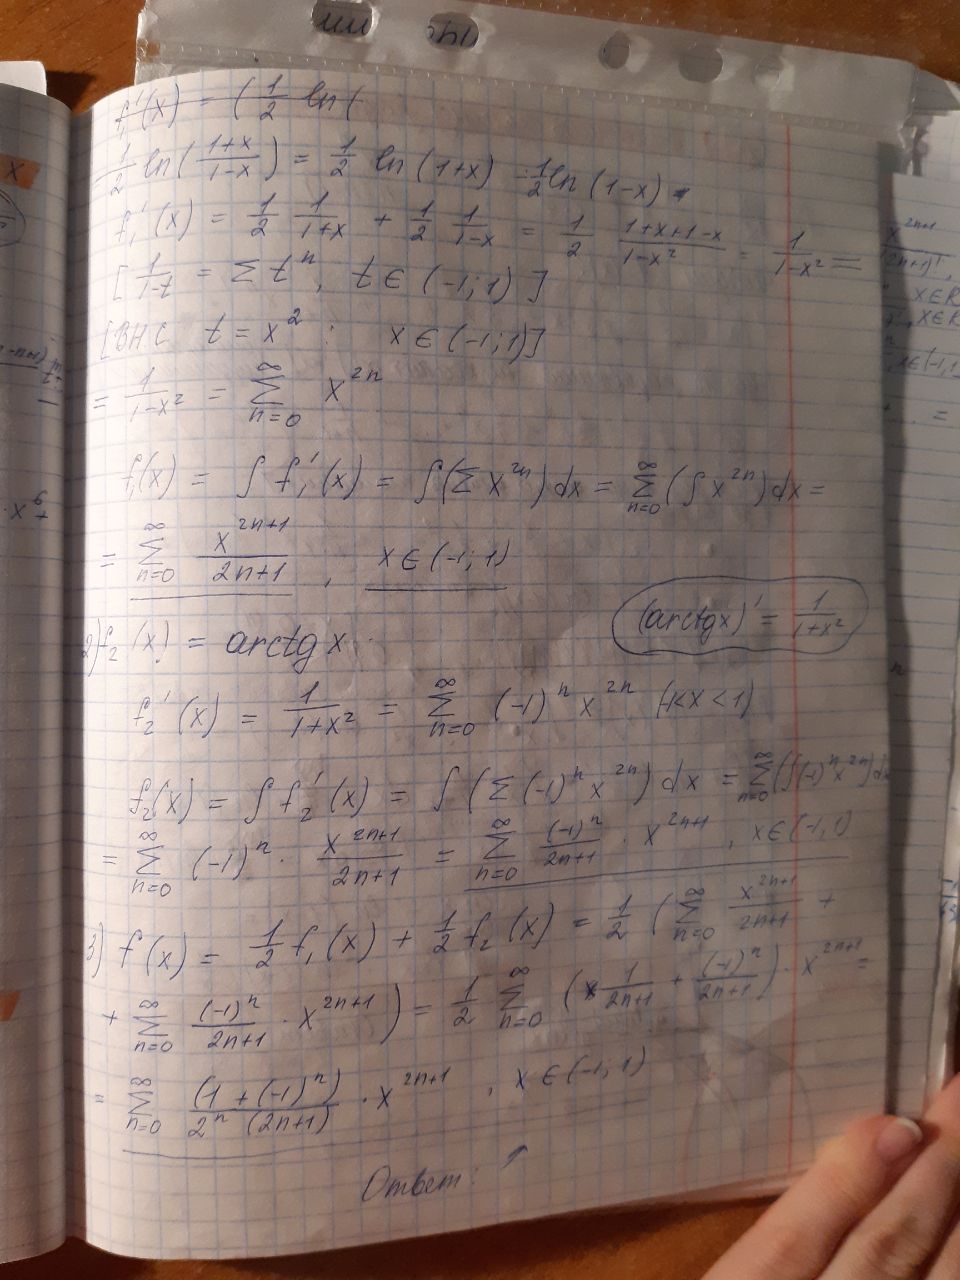 f₁'(x) = (1/2 ln(
1/2 ln((1+x)/(1-x)) = 1/2 ln(1+x) - 1/2 ln(1-x)
f₁'(x) = 1/2 1/(1+x) + 1/2 1/(1-x) = 1/2 (1+x+1-x)/(1-x²) = 1/(1-x²) =
[1/(1-t) = Σ tⁿ, t ∈ (-1; 1)]
t = x² : x ∈ (-1; 1)]
= 1/(1-x²) = Σ_{n=0}^{∞} x^{2n}
f₁(x) = ∫ f₁'(x) = ∫(Σ x^{2n}) dx = Σ_{n=0}^{∞} (∫ x^{2n}) dx =
= Σ_{n=0}^{∞} x^{2n+1}/(2n+1), x ∈ (-1; 1)
(arctg x)' = 1/(1+x²)
2) f₂(x) = arctg x
f₂'(x) = 1/(1+x²) = Σ_{n=0}^{∞} (-1)ⁿ x^{2n} (-1<x<1)
f₂(x) = ∫ f₂'(x) = ∫(Σ (-1)ⁿ x^{2n}) dx = Σ_{n=0}^{∞} (∫(-1)ⁿ x^{2n}) dx
= Σ_{n=0}^{∞} (-1)ⁿ · x^{2n+1}/(2n+1) = Σ_{n=0}^{∞} (-1)ⁿ/(2n+1) · x^{2n+1}, x ∈ (-1; 1)
3) f(x) = 1/2 f₁(x) + 1/2 f₂(x) = 1/2 (Σ_{n=0}^{∞} x^{2n+1}/(2n+1) +
+ Σ_{n=0}^{∞} (-1)ⁿ/(2n+1) · x^{2n+1}) = 1/2 Σ_{n=0}^{∞} (1/(2n+1) + (-1)ⁿ/(2n+1)) · x^{2n+1} =
= Σ_{n=0}^{∞} (1 + (-1)ⁿ)/(2ⁿ (2n+1)) · x^{2n+1}, x ∈ (-1; 1)
Ответ: ↑